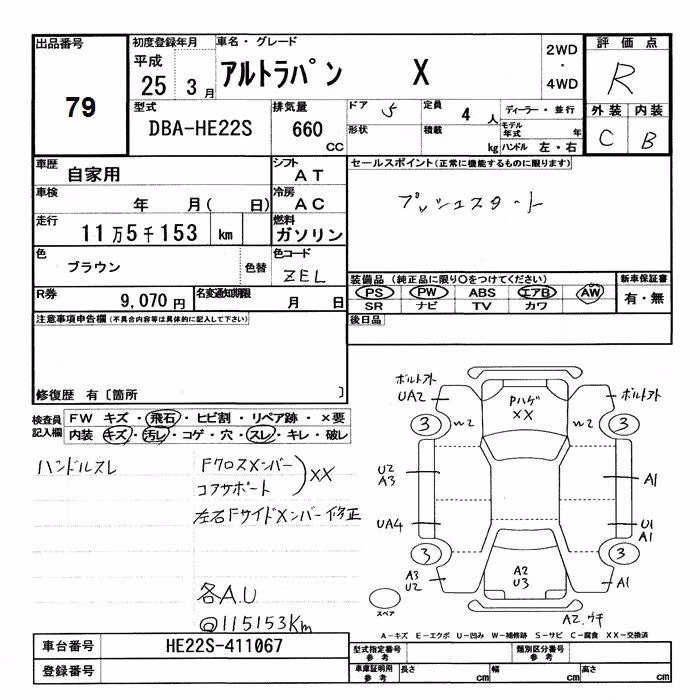 出品番号
79
初度登録年月
平成
25 3月
車名・グレード
アルトラパン X
2WD
・
4WD
評価点
R
型式
DBA-HE22S
排気量
660
cc
ドア 5
形状
定員 4 人
積載 kg
ディーラー・並行
モデル年式 年
ハンドル 左・右
外装 内装
C B
車歴 自家用
シフト
AT
車検 年 月( 日)
冷房
AC
走行 11万5千153 km
燃料
ガソリン
色 ブラウン 色替
色コード
ZEL
R券 9,070円
名変通知期限 月 日
セールスポイント(正常に機能するものに限ります)
プッシュスタート
装備品(純正品に限り〇をつけてください)
PS PW ABS エアB AW
SR ナビ TV カワ
新車保証書
有・無
後日品
注意事項申告欄(不具合内容等は具体的に記入して下さい)
修復歴 有〔箇所 〕
検査員記入欄
FW キズ・飛石・ヒビ割・リペア跡・×要
内装 キズ・汚レ・コゲ・穴・スレ・キレ・破レ
ハンドルスレ
Fクロスメンバー
コアサポート
XX
左右Fサイドメンバー修正
各A.U
@115153Km
ボルトアト
UA2
Pハゲ
XX
ボルトアト
3 W2 W2 3
U2
A3
A1
UA4
U1
A1
3 3
A3
U2
A2
U3
A1
スペア
A2.ウチ
A-キズ E-エクボ U-凹み W-補修跡 S-サビ C-腐食 XX-交換済
車台番号 HE22S-411067
登録番号
型式指定番号
参考
類別区分番号
参考
車庫証明用
参考
長さ cm 幅 cm 高さ cm